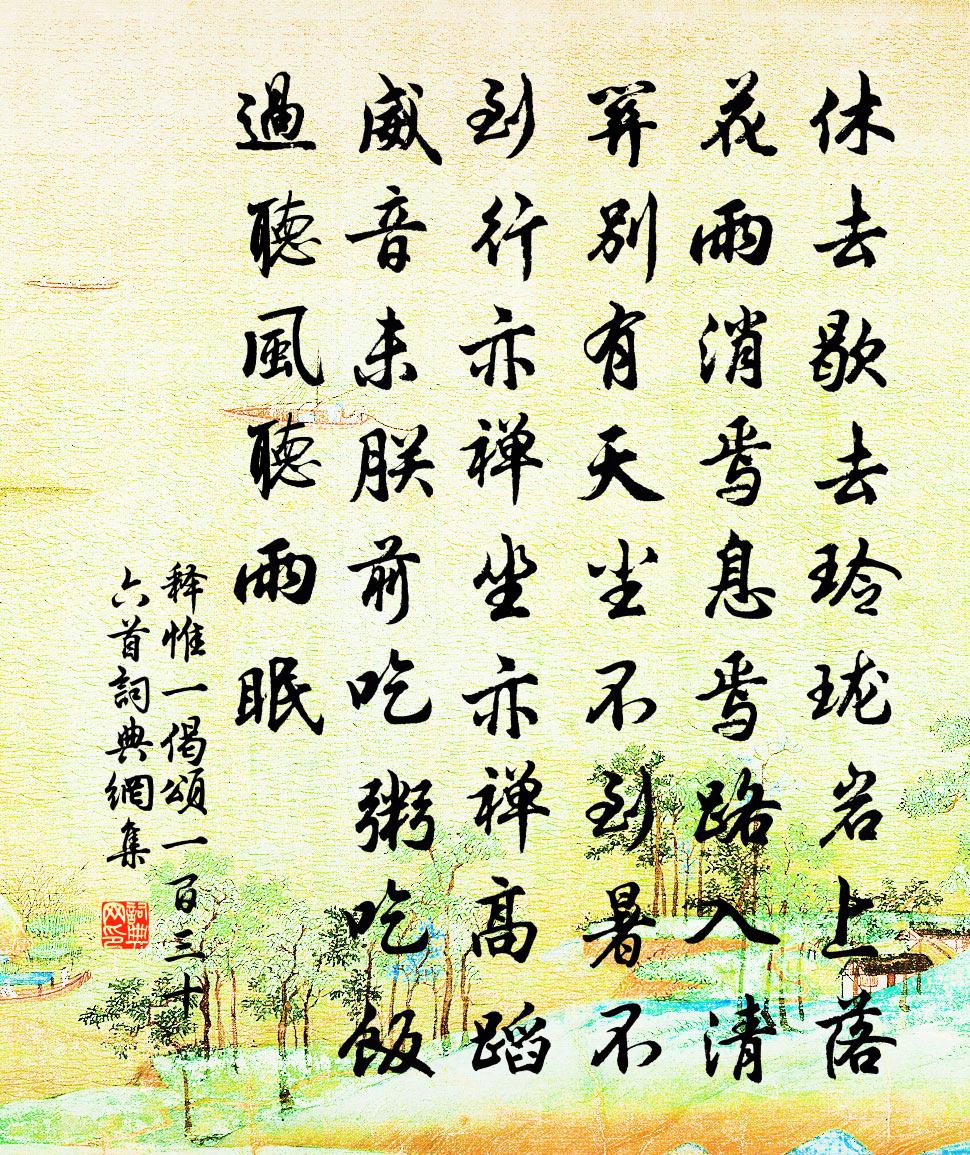 休去歇去玲珑岩上落
花雨消焉息焉路入清
别有天尘不到暑不
到行亦禅坐亦禅高蹈
威音未朕前吃粥吃飯
過聽風聽雨眠
释惟一偈頌一百三十
六首詞典網集
詞典网印